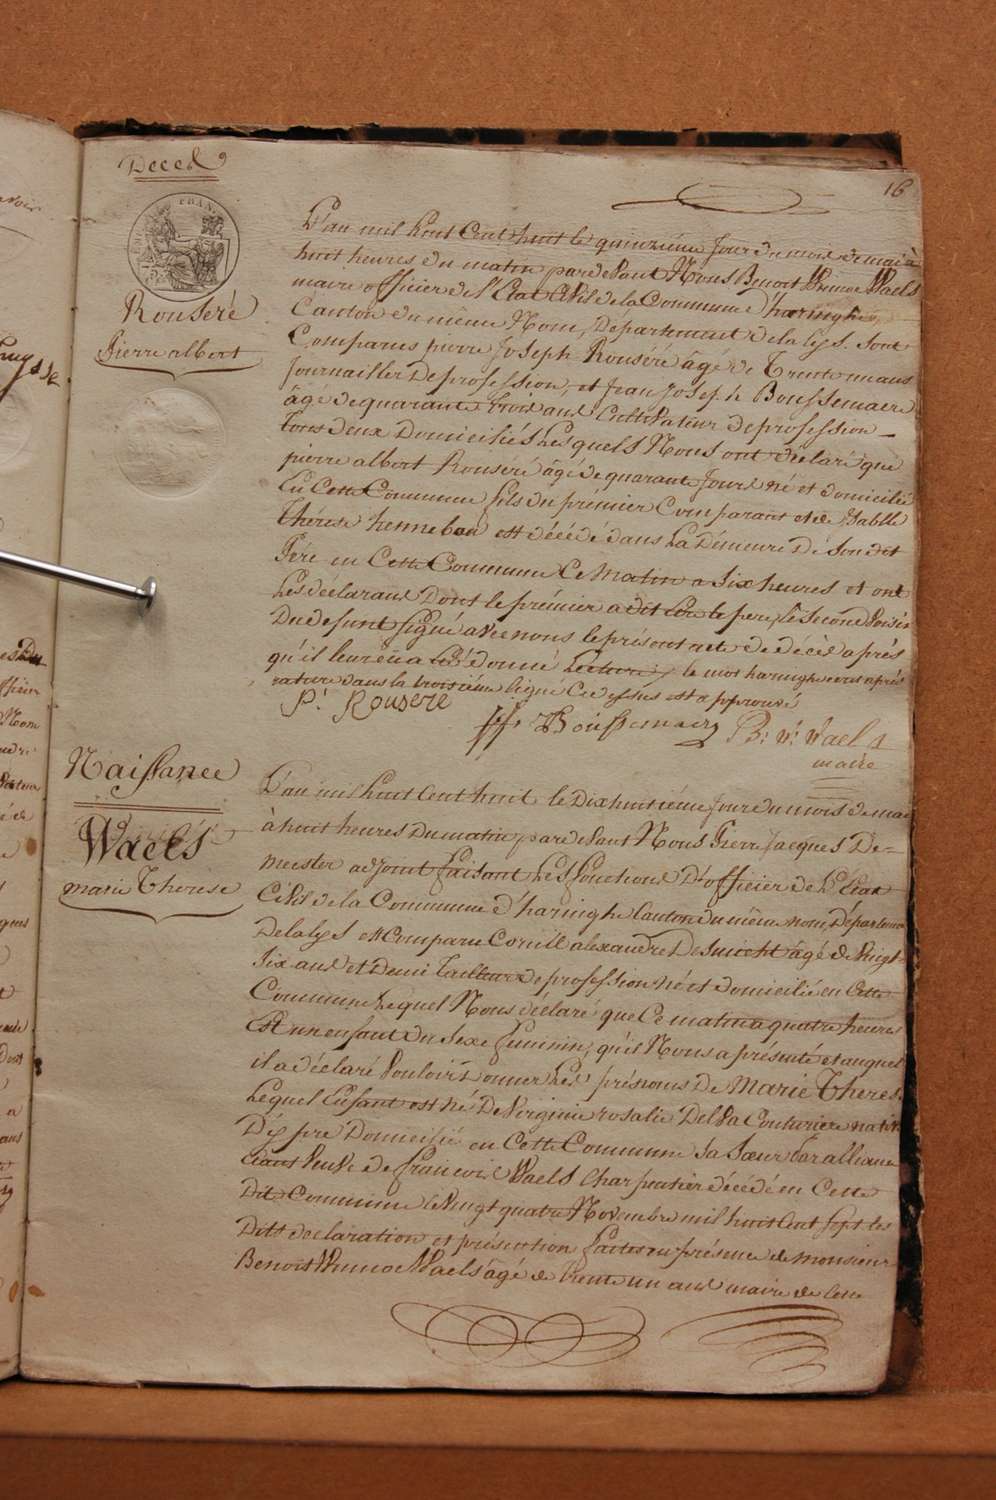 Decel
16
FRANC
Rouseré
Pierre albert
L'an mil huit Cent huit le quinzième Jour du mois de mai à
huit heures du matin pardevant Nous Benoit Winnoc Waels
maire officier de l'Etat Civil de la Commune d'haringhe,
Canton du même Nom, Département de la lys. sont
Comparus pierre Joseph Rouseré âgé de Trente un ans
Journaillier de profession, et Jean Joseph Boussemaere
âgé de quarante Trois ans Cultivateur de profession
tous deux Domiciliés Les quels Nous ont déclaré que
pierre albert Rouseré âgé de quarante Jours né et domicilié
En Cette Commune fils du prémier Comparant et de
Thérese hennebau est décédé dans La Démeure dé Son dit
Pére en Cette Commune Ce Matin a Six heures et ont
Les déclarans Dont le prémier a dit être le pere, le Second
Du defunt signé avec nous le présent acte de décès après
qu'il leur en a été donné Lecture, le mot haringhe
rature dans la troisième ligne Ci dessus est approuvé
P. Rousere
J. J. Boussemaere
B. W. Waels
maire
Naissance
Waels
marie Therese
L'an mil huit Cent huit le Dix huitième Jour du mois de mai
à huit heures Du matin pardevant Nous Pierre Jacques De=
meester adjoint faisant Les fonctions D'officier de L'Etat
Civil de la Commune d'haringhe Canton du même nom, Départemen
De la lys est Comparu Corneil alexandre Desmicht âgé de Vingt
Six ans et Demi Tailleur de profession né et domicilié en Cette
Commune Lequel Nous déclaré que Ce matin a quatre heures
Est un enfant du Sexe feminin, qu'il Nous a présenté et auquel
il a déclaré Vouloir Donner Les prénoms de Marie Theres
Lequel Enfant est Né De Virginie rosalie Delva Couturiere native
D'ÿpre Domicilié en Cette Commune Sa Sœur Par alliance
étant Veuve de francois Waels Charpentier décédé en Cette
Dit Commune le Vingt quatre Novembre mil huit Cent Sept les
Dits declaration et présention faites en présence de monsieur
Benoit Winnoc Waels âgé de Trente un ans maire de Cette